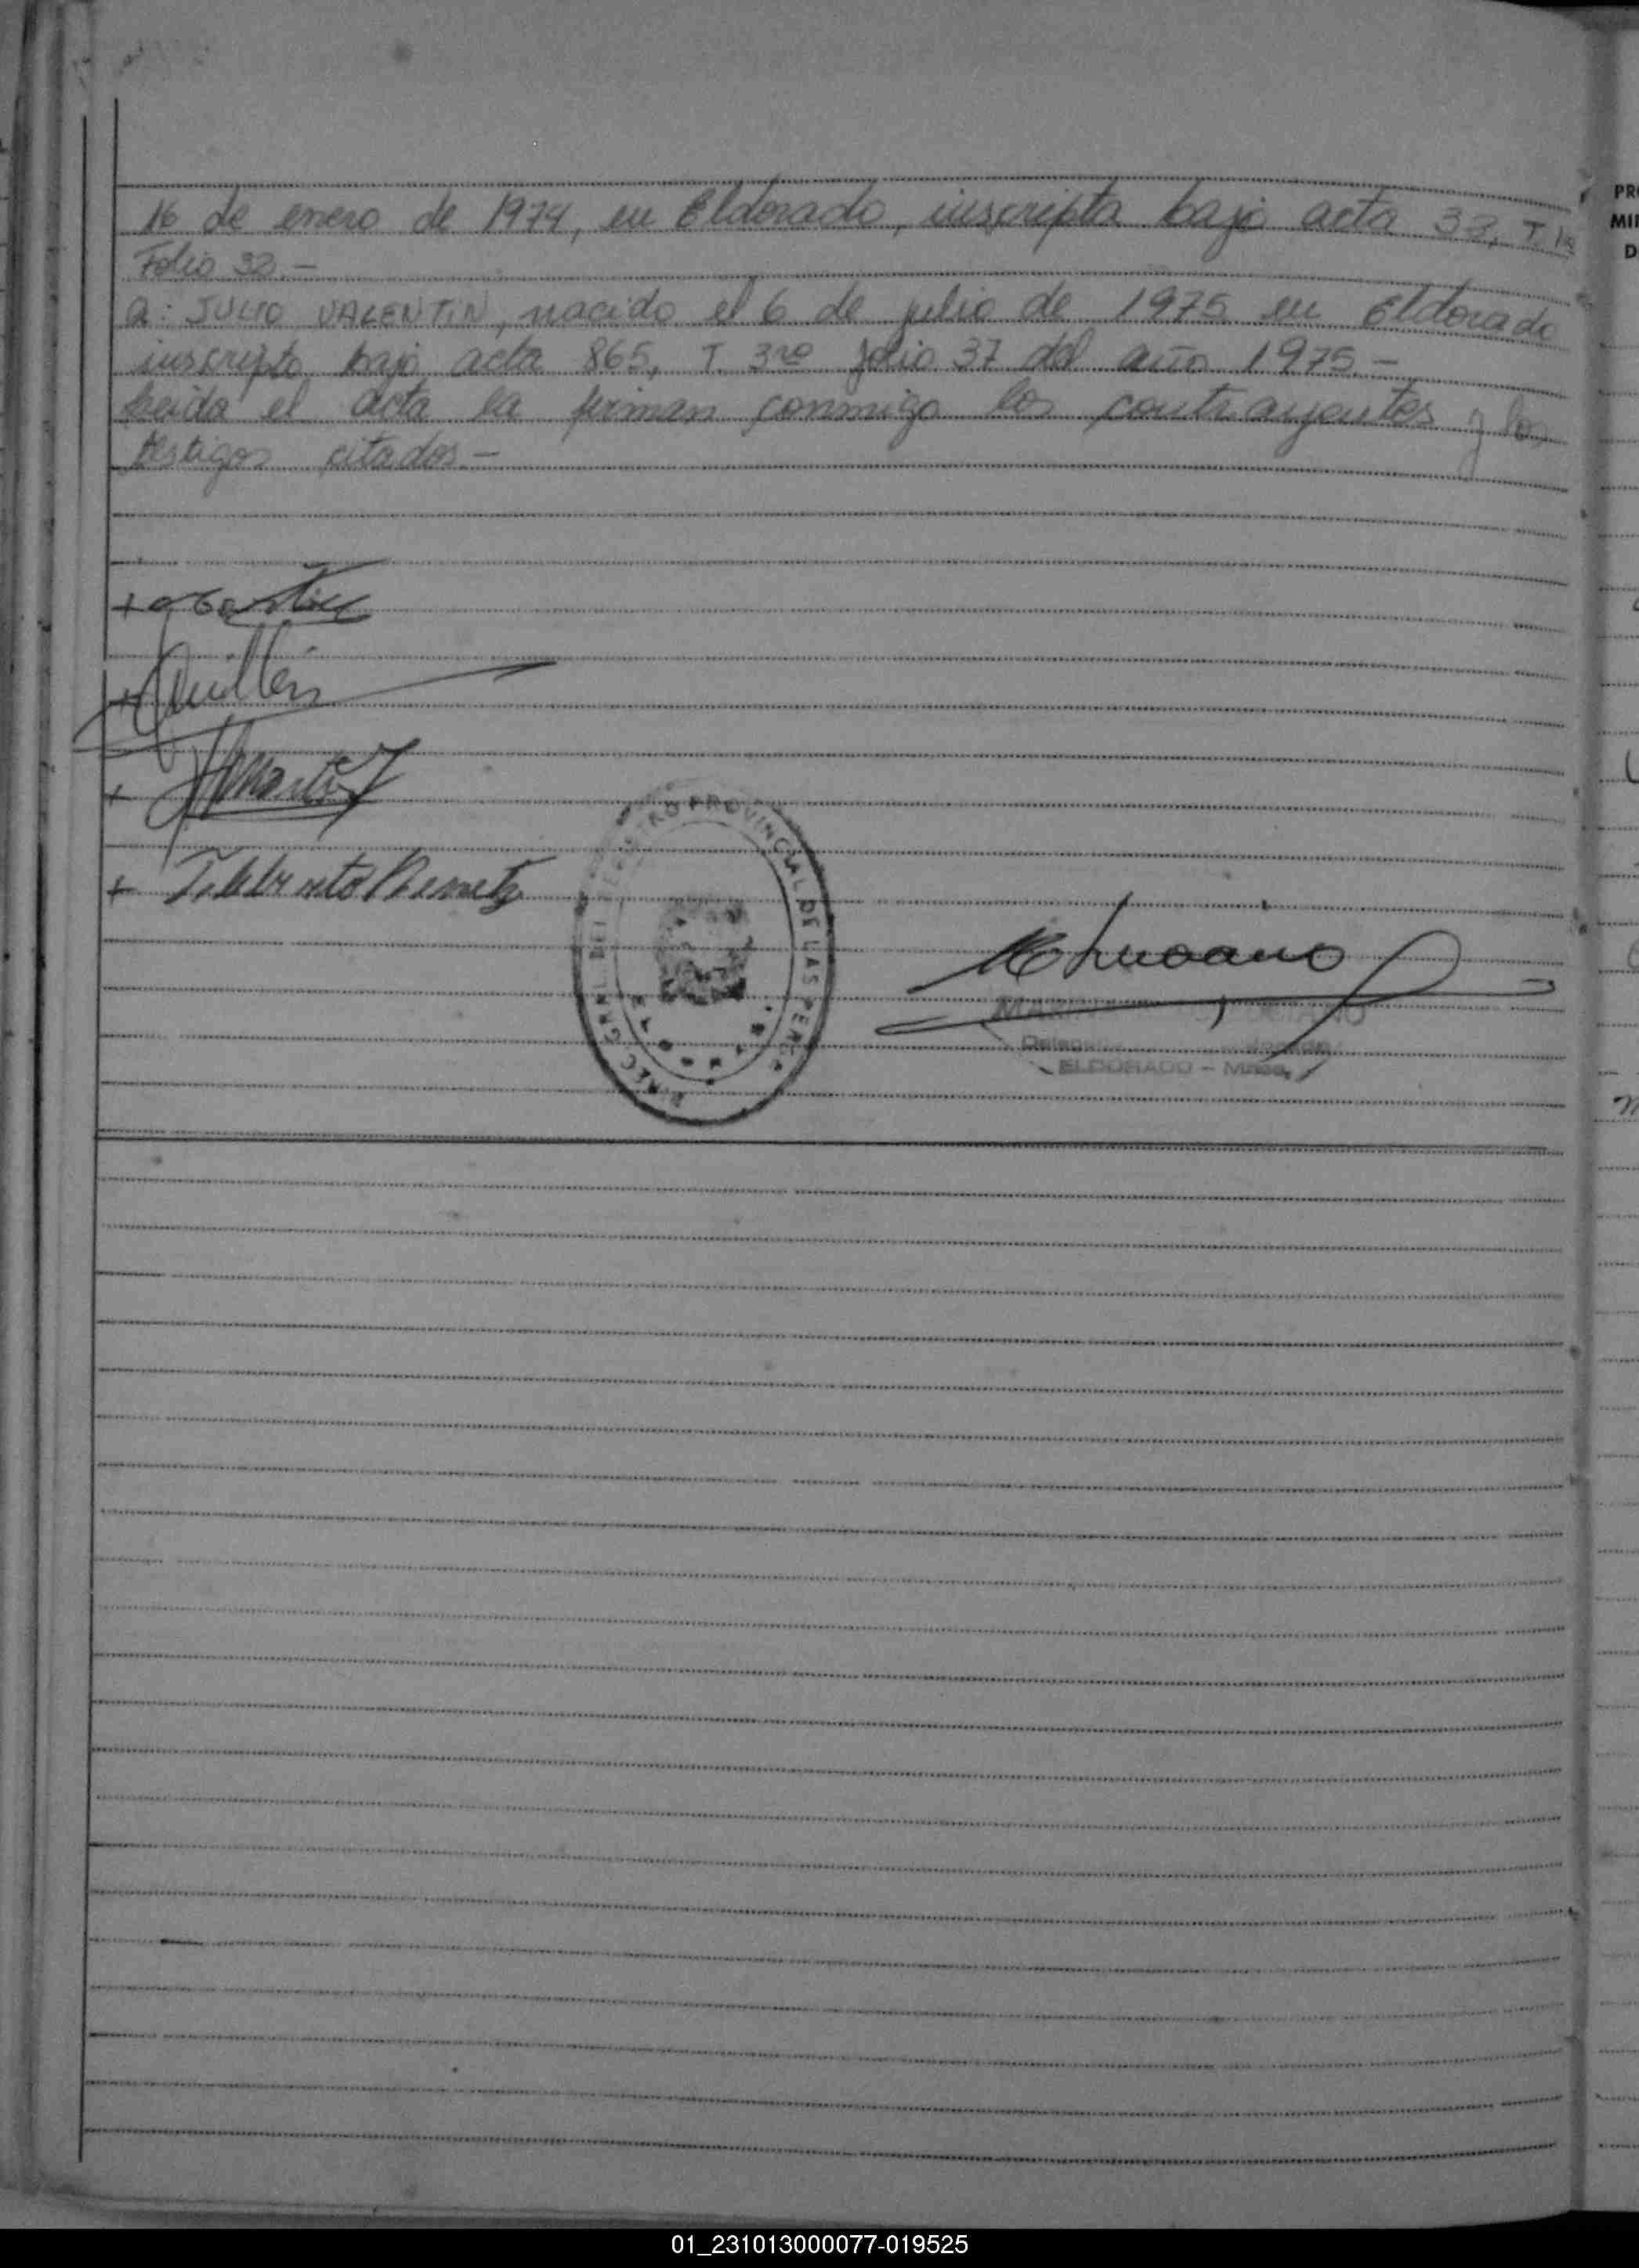 16 de enero de 1974, en Eldorado, inscripta bajo acta 33, T. 1º
Folio 32.-
a: JULIO VALENTIN, nacido el 6 de julio de 1975 en Eldorado
inscripto bajo acta 865, T. 3ro folio 37 del año 1975.-
Leida el acta la firman conmigo los contrayentes y los
testigos citados.-
REGISTRO PROVINCIAL DE LAS PERS
ELDORADO - Mnes.
PR
MI
D
01_231013000077-019525